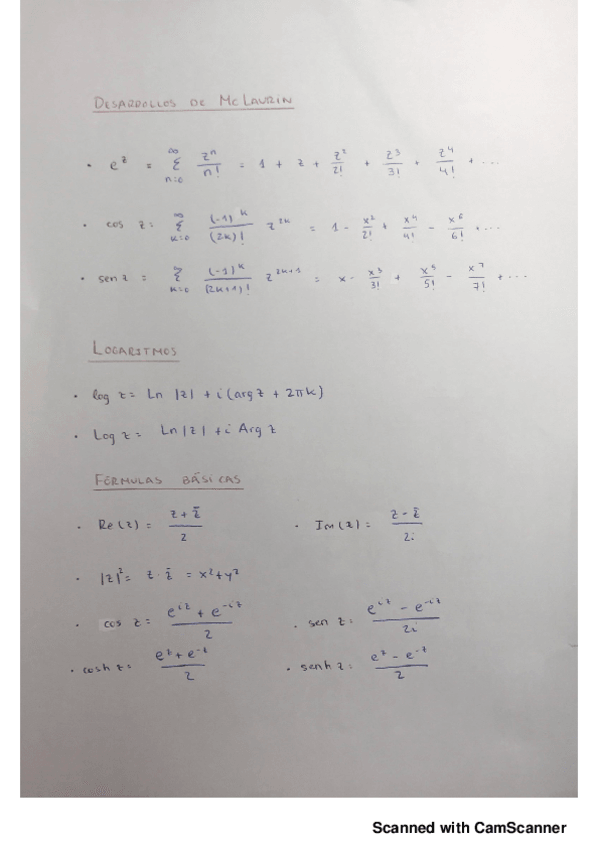 DESARROLLOS DE MC LAURIN
• e^z = ∞Σn=0 z^n/n! = 1 + z + z^2/2! + z^3/3! + z^4/4! + ...
• cos z = ∞Σk=0 (-1)^k/(2k)! z^2k = 1 - x^2/2! + x^4/4! - x^6/6! + ...
• sen z = ∞Σk=0 (-1)^k/(2k+1)! z^2k+1 = x - x^3/3! + x^5/5! - x^7/7! + ...
LOGARITMOS
• log z = Ln |z| + i (arg z + 2πk)
• Log z = Ln |z| + i Arg z
FÓRMULAS BÁSICAS
• Re(z) = z + z̄/2 • Im(z) = z - z̄/2i
• |z|^2 = z · z̄ = x^2 + y^2
• cos z = e^iz + e^-iz/2 • sen z = e^iz - e^-iz/2i
• cosh z = e^z + e^-z/2 • senh z = e^z - e^-z/2
Scanned with CamScanner